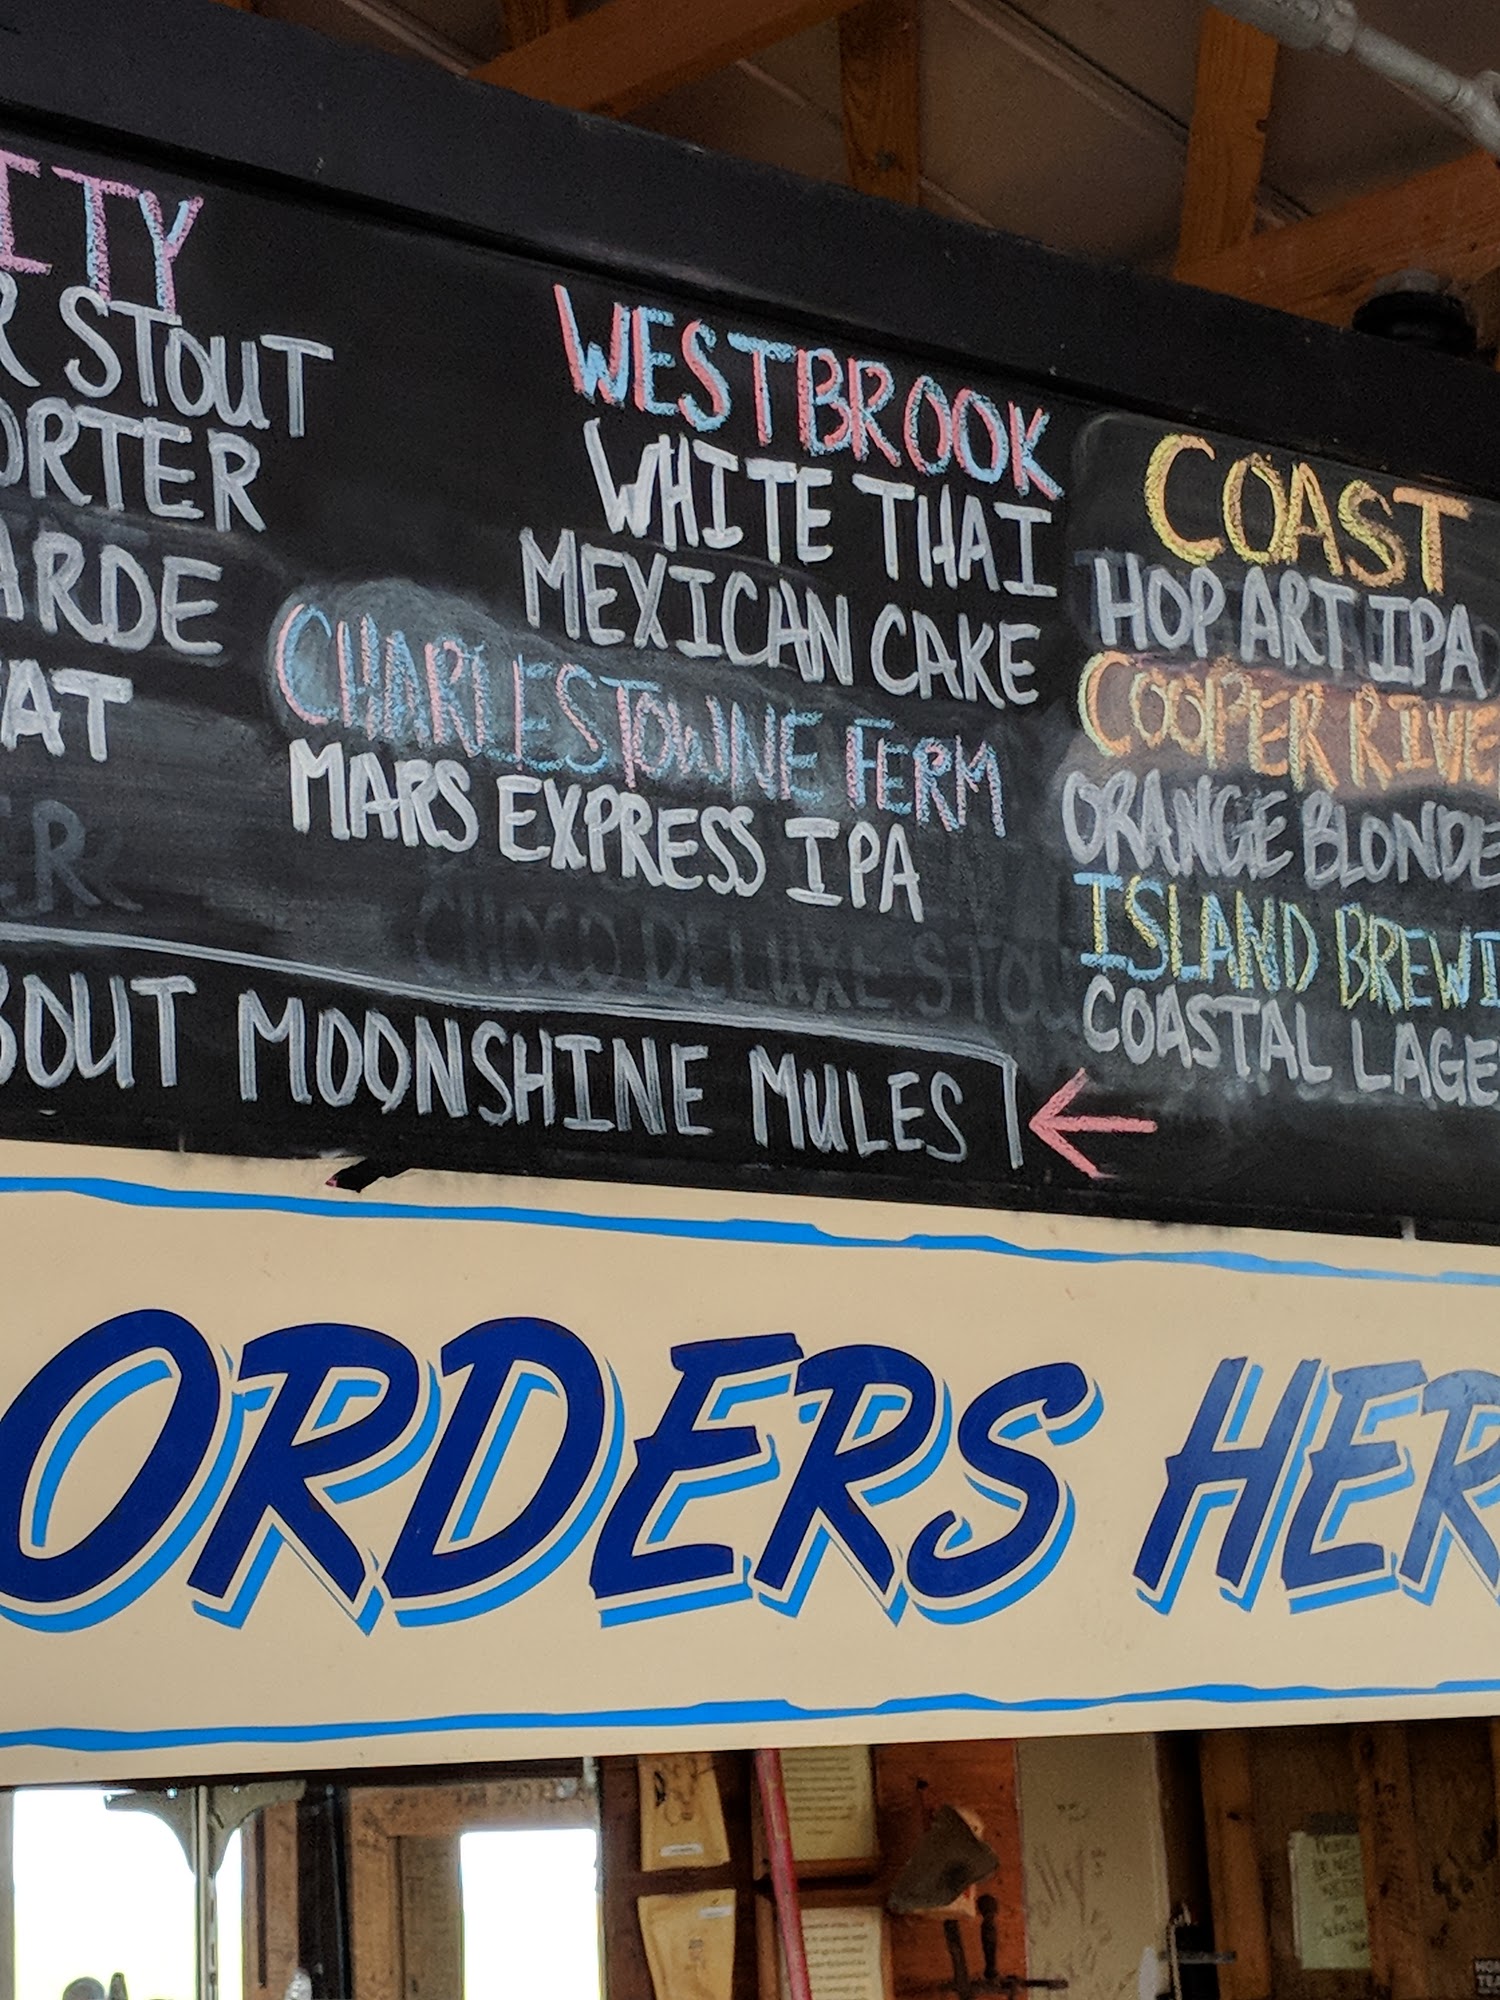 ITY
R STOUT
ORTER
ARDE
AT
ER
WESTBROOK
WHITE THAI
MEXICAN CAKE
CHARLESTOWNE FERM
MARS EXPRESS IPA
CHOCO DELUXE STOU
COAST
HOP ART IPA
COOPER RIVE
ORANGE BLONDE
ISLAND BREWI
COASTAL LAGE
BOUT MOONSHINE MULES
ORDERS HER